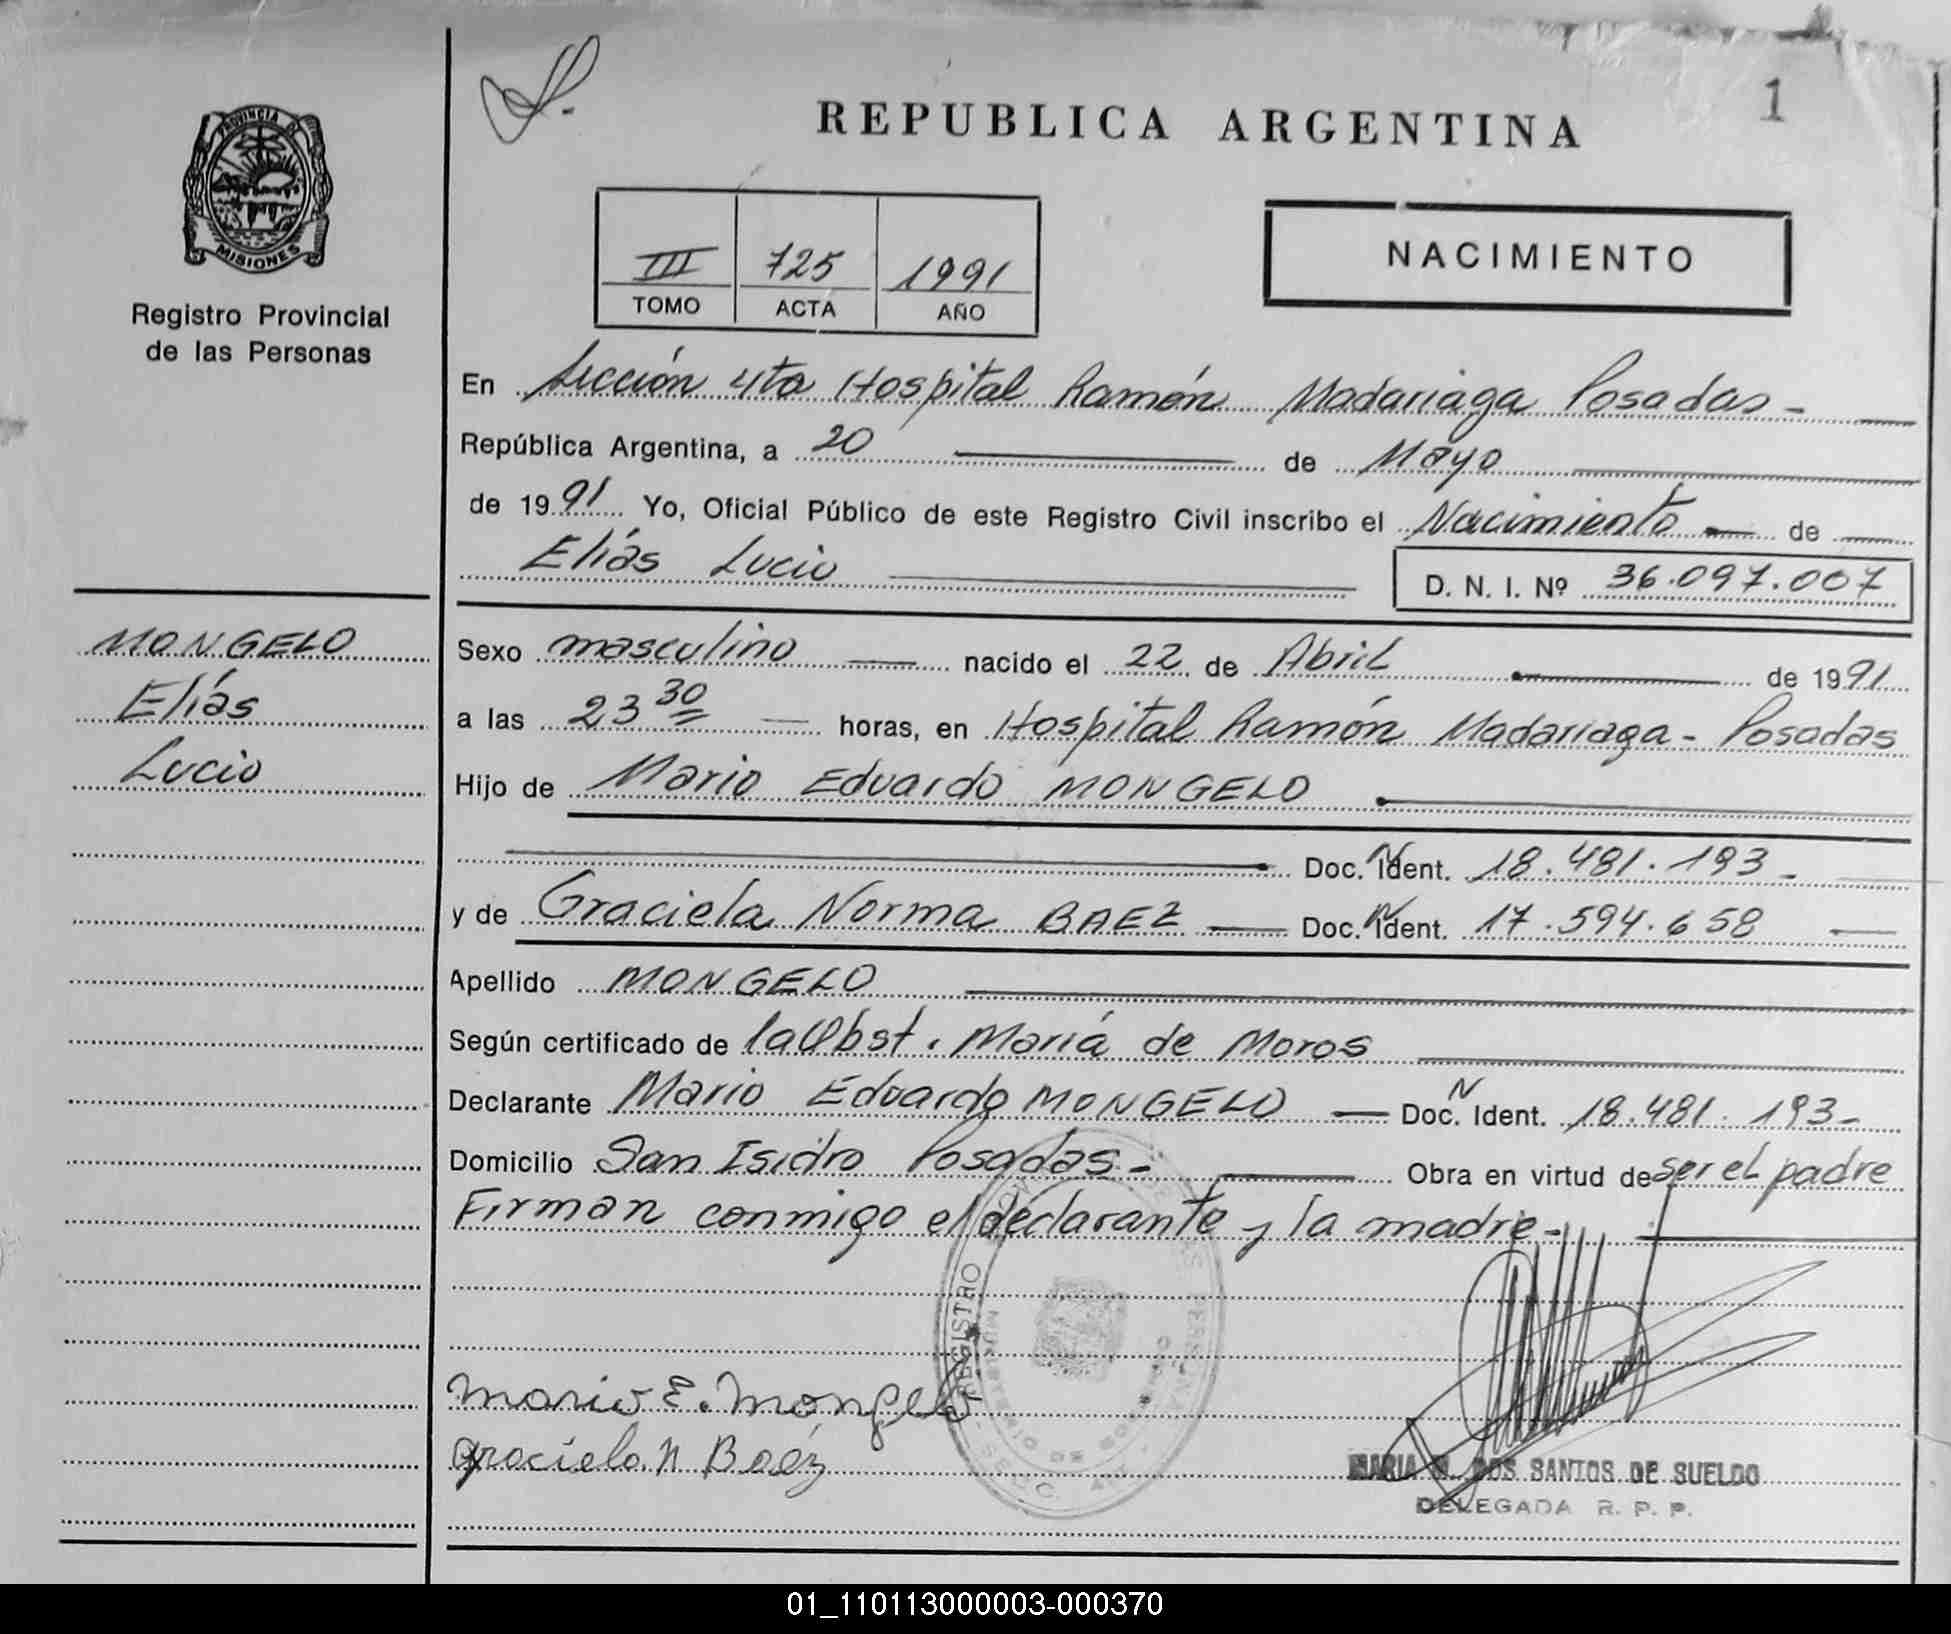 1
REPUBLICA ARGENTINA
PROVINCIA DE
MISIONES
Registro Provincial
de las Personas
III 725 1991
TOMO ACTA AÑO
NACIMIENTO
En Sección 4ta Hospital Ramón Madariaga Posadas -
República Argentina, a 20 de Mayo
de 1991 Yo, Oficial Público de este Registro Civil inscribo el Nacimiento de
Elías Lucio
D. N. I. Nº 36.097.007
MONGELO
Elías
Lucio
Sexo masculino nacido el 22 de Abril de 1991
a las 23 30 horas, en Hospital Ramón Madariaga - Posadas
Hijo de Mario Eduardo MONGELO
Doc. Ident. 18.481.193 -
y de Graciela Norma BAEZ Doc. Ident. 17.594.658
Apellido MONGELO
Según certificado de la Obst. María de Moros
Declarante Mario Eduardo MONGELO Doc. Ident. 18.481.193-
Domicilio San Isidro Posadas - Obra en virtud de ser el padre
Firman conmigo el declarante y la madre -
REGISTRO
Mario E. Mongelo
Graciela N Baéz
MARIA DOS SANTOS DE SUELDO
DELEGADA R. P. P.
01_110113000003-000370